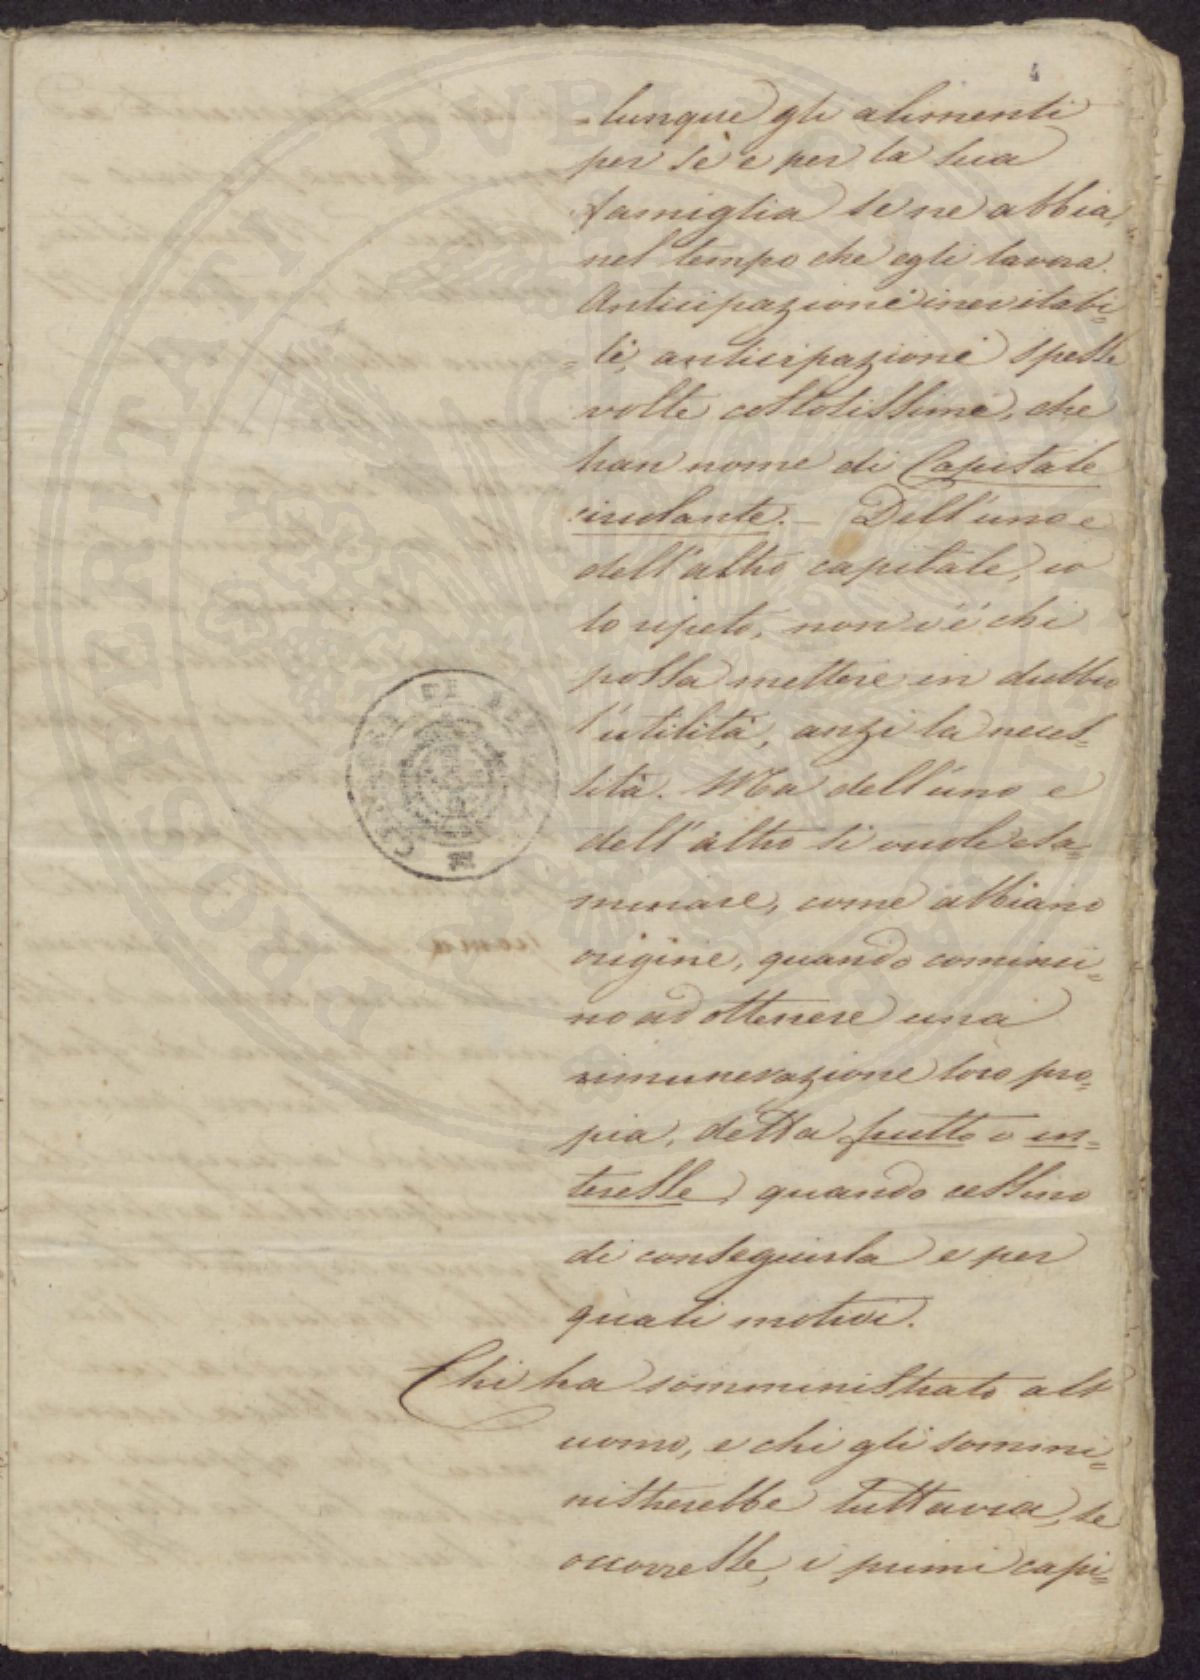 4
-lunque gli alimenti
per sè e per la sua
famiglia se ne abbia,
nel tempo che egli lavora.
Anticipazione inevitabi-
-le, anticipazione spesse
volte costosissime, che
han nome di Capitale
circolante. - Dell'uno e
dell'altro capitale, io
lo ripeto, non v'è chi
possa mettere in dubbio
l'utilità, anzi la neces-
sità. Ma dell'uno e
dell'altro si vuole esa-
minare, come abbiano
origine, quando cominci-
no ad ottenere una
rimunerazione loro pro-
pia, detta frutto o in-
teresse, quando cessino
di conseguirla e per
quali motivi.
Chi ha somministrato all'
uomo, e chi gli sommi-
nistrerebbe tuttavia, se
occorresse, i primi capi-
PROSPERITATI PVBLICAE